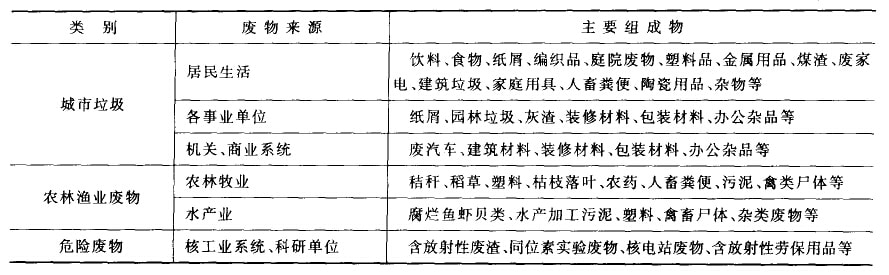 类 别 废 物 来 源 主 要 组 成 物
城市垃圾
居民生活
饮料、食物、纸屑、编织品、庭院废物、塑料品、金属用品、煤渣、废家
电、建筑垃圾、家庭用具、人畜粪便、陶瓷用品、杂物等
各事业单位 纸屑、园林垃圾、灰渣、装修材料、包装材料、办公杂品等
机关、商业系统 废汽车、建筑材料、装修材料、包装材料、办公杂品等
农林渔业废物
农林牧业 秸秆、稻草、塑料、枯枝落叶、农药、人畜粪便、污泥、禽类尸体等
水产业 腐烂鱼虾贝类、水产加工污泥、塑料、禽畜尸体、杂类废物等
危险废物 核工业系统、科研单位 含放射性废渣、同位素实验废物、核电站废物、含放射性劳保用品等